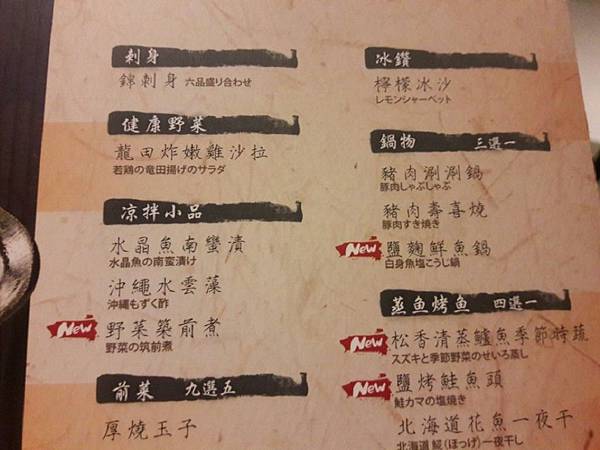 刺身
錦刺身 六品盛り合わせ
健康野菜
龍田炸嫩雞沙拉
若鶏の竜田揚げのサラダ
凉拌小品
水晶魚南蠻漬
水晶魚の南蛮漬け
沖繩水雲藻
沖縄もずく酢
New 野菜築前煮
野菜の筑前煮
前菜 九選五
厚燒玉子
冰鑽
檸檬冰沙
レモンシャーベット
鍋物 三選一
豬肉涮涮鍋
豚肉しゃぶしゃぶ
豬肉壽喜燒
豚肉すき焼き
New 鹽麴鮮魚鍋
白身魚塩こうじ鍋
蒸魚烤魚 四選一
New 松香清蒸鱸魚季節時蔬
スズキと季節野菜のせいろ蒸し
New 鹽烤鮭魚頭
鮭カマの塩焼き
北海道花魚一夜干
北海道 𩸽(ほっけ)一夜干し